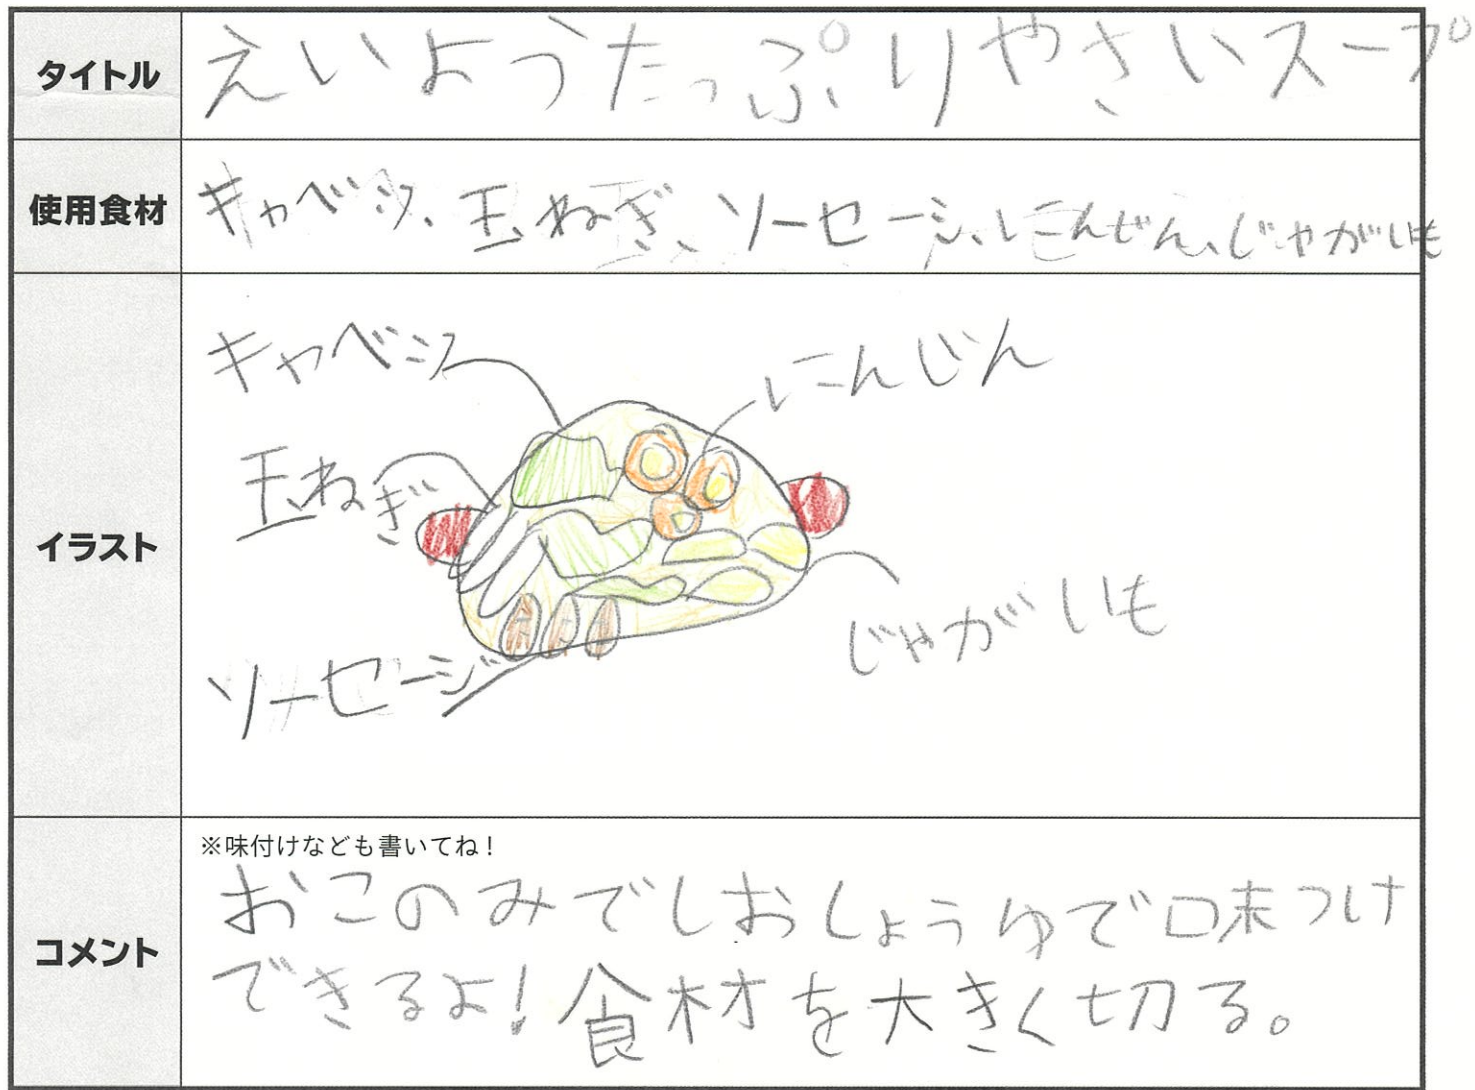 タイトル
えいようたっぷりやさいスープ
使用食材
キャベツ、玉ねぎ、ソーセージ、にんじん、じゃがいも
イラスト
キャベツ
にんじん
玉ねぎ
じゃがいも
ソーセージ
コメント
※味付けなども書いてね！
おこのみでしおしょうゆで味つけ
できるよ！食材を大きく切る。